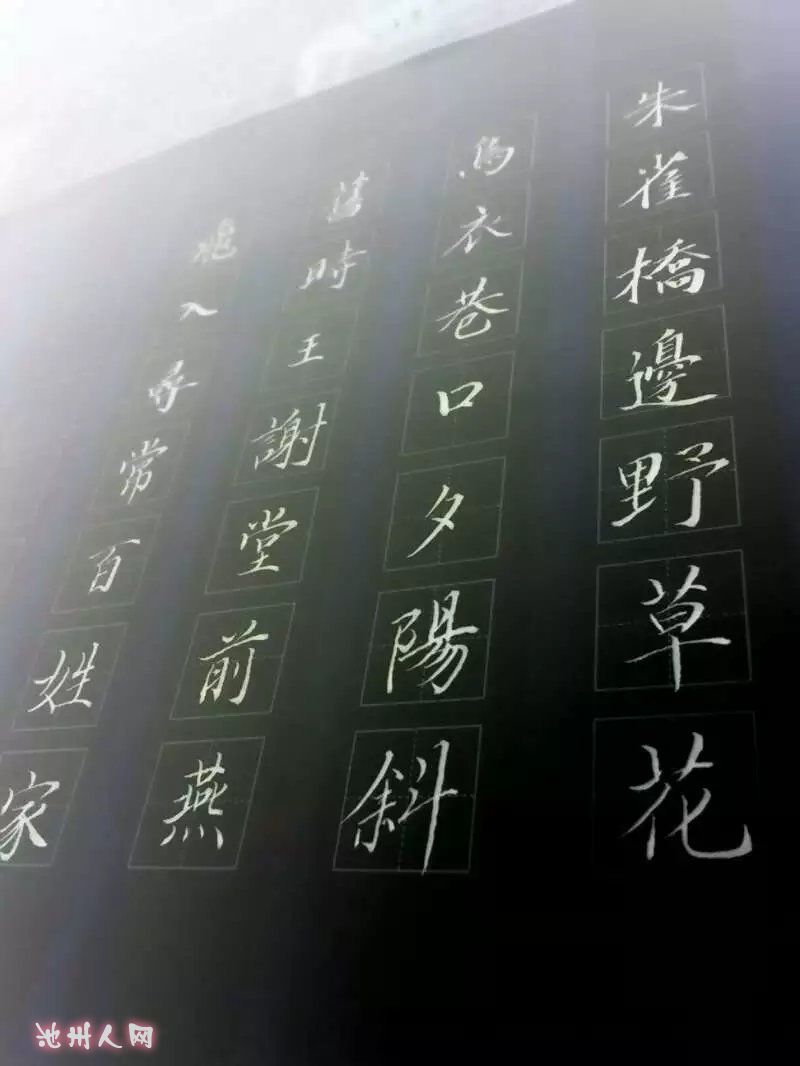 朱雀橋邊野草花
烏衣巷口夕陽斜
舊時王謝堂前燕
飛入尋常百姓家
池州人网